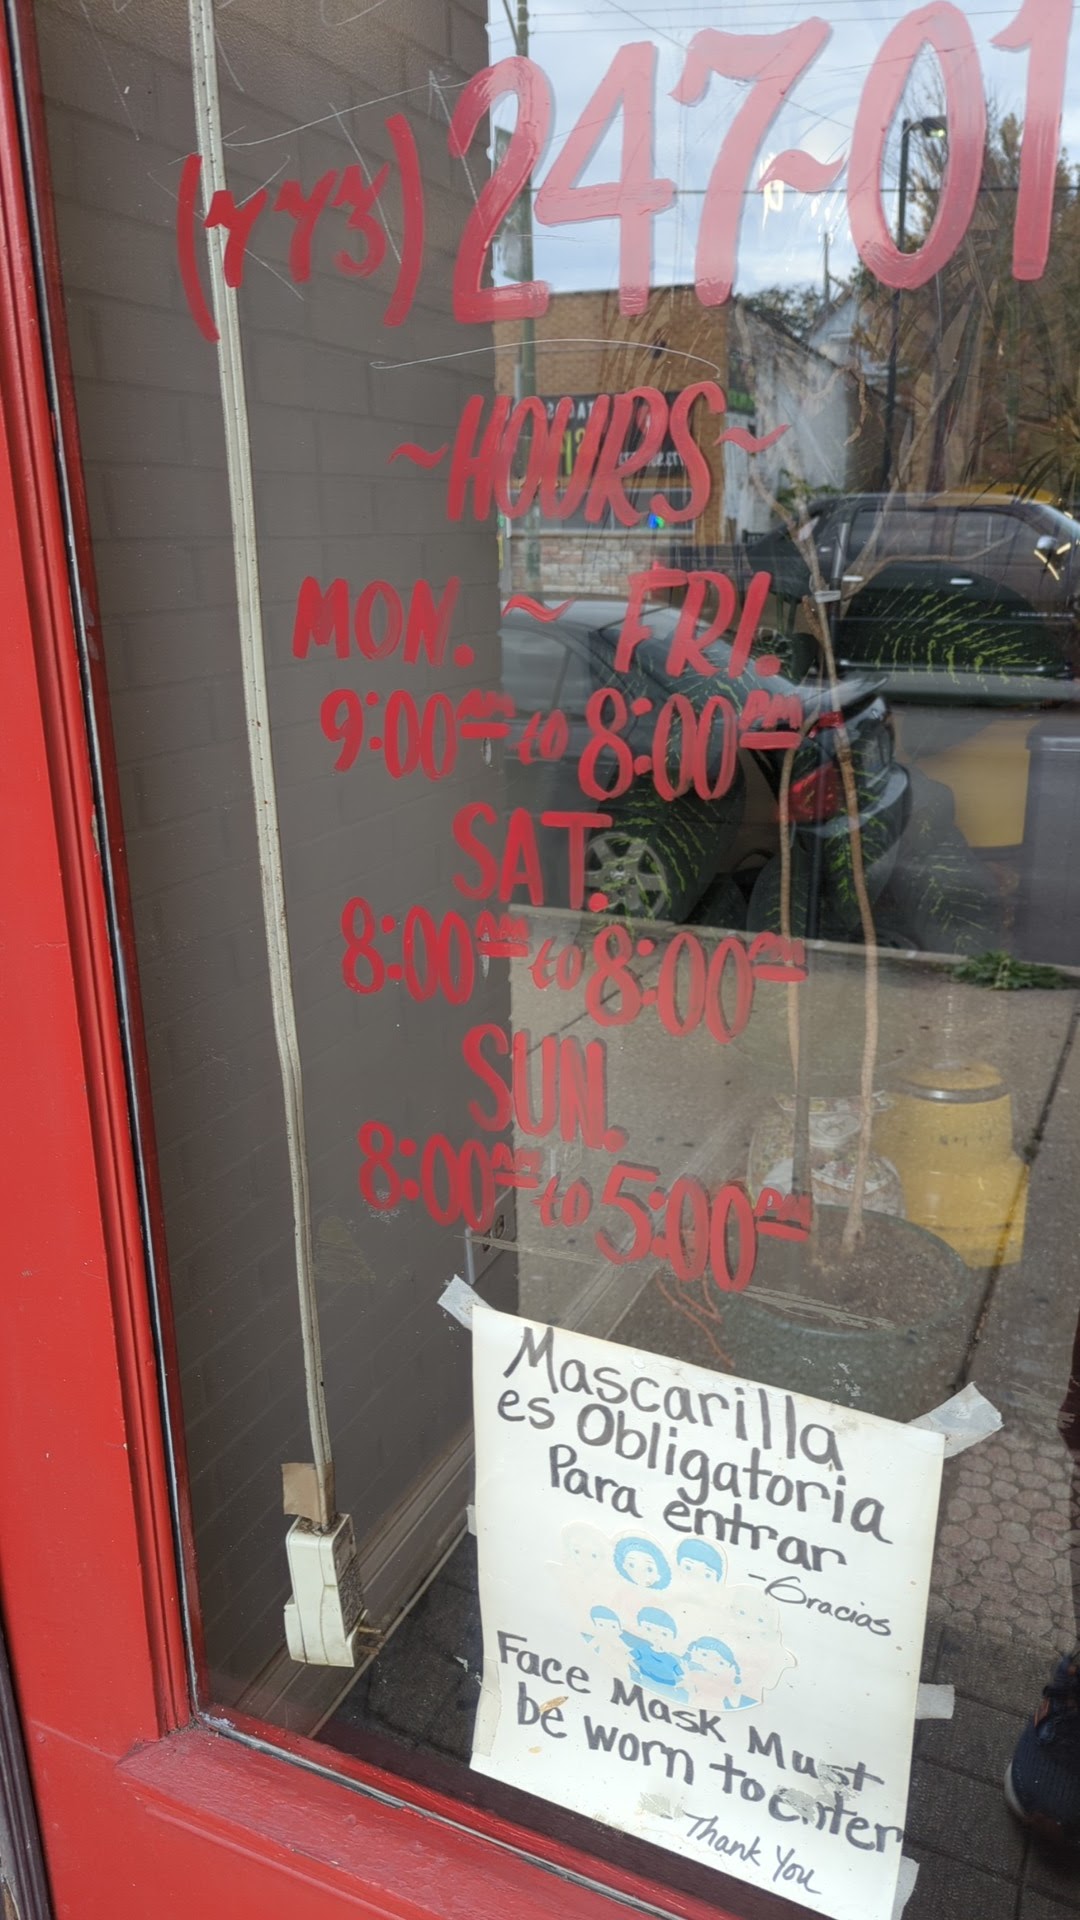 (773) 247-01
~HOURS~
MON. ~ FRI.
9:00 AM to 8:00 PM
SAT.
8:00 AM to 8:00 PM
SUN.
8:00 AM to 5:00 PM
Mascarilla
es Obligatoria
Para entrar
-Gracias.
Face Mask Must
be worn to enter
- Thank You